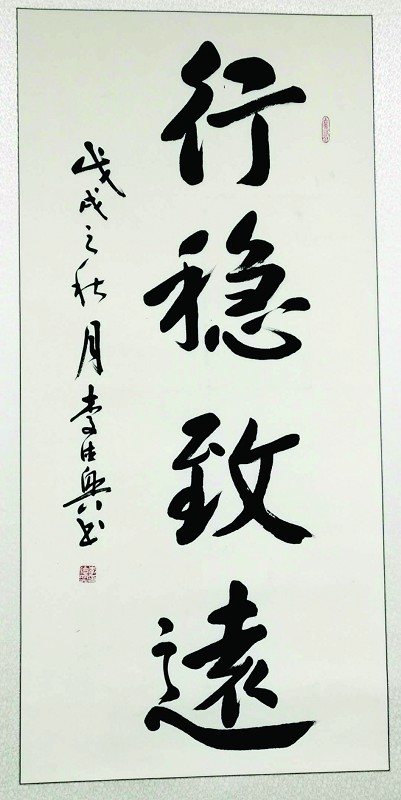 行稳致遠
戊戌之秋月李佳兴书